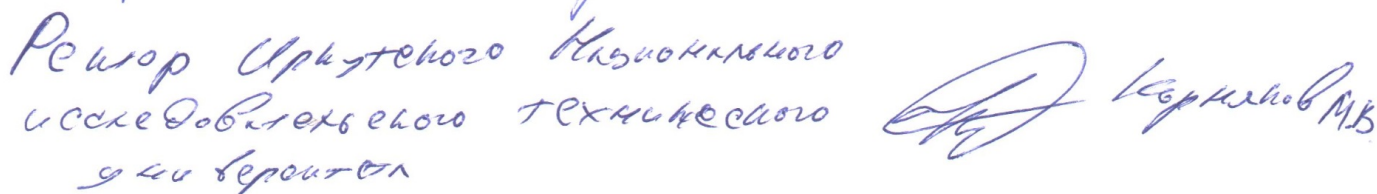 Ректор Иркутского Национального
исследовательского технического
университета
Корняков М.В